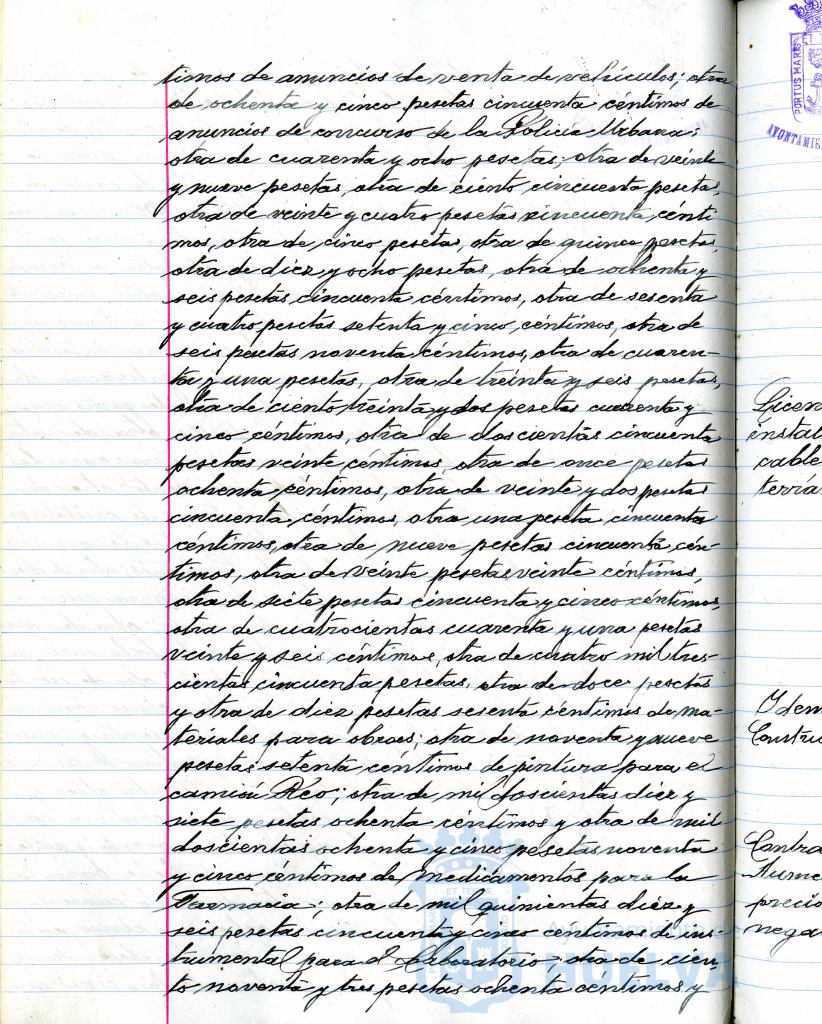 timos de anuncios de venta de vehículos; otra
de ochenta y cinco pesetas cincuenta céntimos de
anuncios de concurso de la Policía Urbana;
otra de cuarenta y ocho pesetas; otra de veinte
y nueve pesetas, otra de ciento cincuenta pesetas,
otra de veinte y cuatro pesetas cincuenta cénti
mos, otra de cinco pesetas, otra de quince pesetas,
otra de diez y ocho pesetas, otra de ochenta y
seis pesetas cincuenta céntimos, otra de sesenta
y cuatro pesetas setenta y cinco céntimos, otra de
seis pesetas noventa céntimos, otra de cuaren-
ta y una pesetas, otra de treinta y seis pesetas,
otra de ciento treinta y dos pesetas cuarenta y
cinco céntimos, otra de doscientas cincuenta
pesetas veinte céntimos, otra de once pesetas
ochenta céntimos, otra de veinte y dos pesetas
cincuenta céntimos, otra una peseta cincuenta
céntimos, otra de nueve pesetas cincuenta cén-
timos, otra de veinte pesetas veinte céntimos,
otra de siete pesetas cincuenta y cinco céntimos,
otra de cuatrocientas cuarenta y una pesetas
veinte y seis céntimos, otra de cuatro mil tres-
cientas cincuenta pesetas, otra de doce pesetas
y otra de diez pesetas sesenta céntimos de ma-
teriales para obras; otra de noventa y nueve
pesetas setenta céntimos de pintura para el
camión Reo; otra de mil doscientas diez y
siete pesetas ochenta céntimos y otra de mil
doscientas ochenta y cinco pesetas noventa
y cinco céntimos de medicamentos para la
Farmacia; otra de mil quinientas diez y
seis pesetas cincuenta y cinco céntimos de ins-
trumental para el Laboratorio; otra de cien-
to noventa y tres pesetas ochenta céntimos y
Licen
instal
cable
terrá
Idem
Constru
Contra
Aume
precio
nega
PORTUS MARIS
AYUNTAMIE
HUELVA